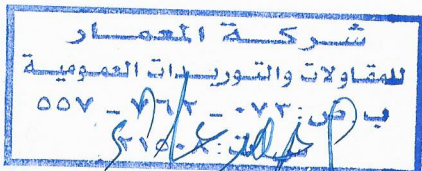 شركة المعمار
للمقاولات والتوريدات العمومية
ب ض: ٠٧٣ - ٧٦٢ - ٥٥٧